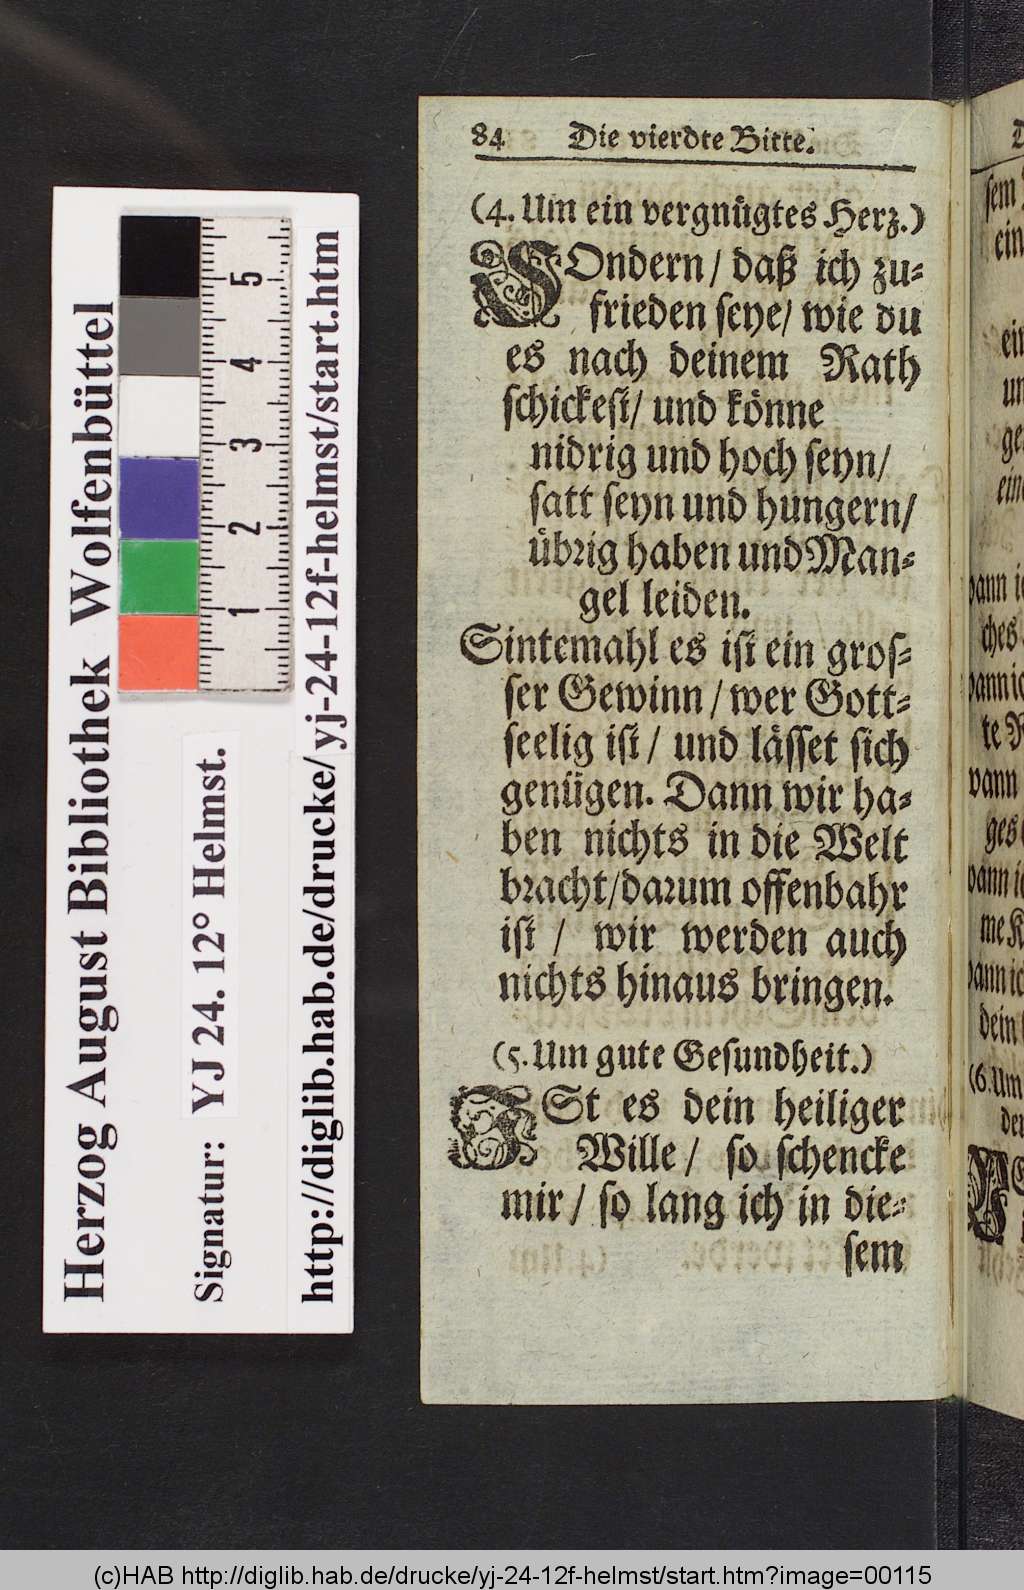 Herzog August Bibliothek Wolfenbüttel
Signatur: YJ 24. 12° Helmst.
http://diglib.hab.de/drucke/yj-24-12f-helmst/start.htm
5
4
3
2
1
84 Die vierdte Bitte.
(4. Um ein vergnügtes Herz.)
SOndern / daß ich zu-
frieden seye / wie du
es nach deinem Rath
schickest / und könne
nidrig und hoch seyn /
satt seyn und hungern /
übrig haben und Man-
gel leiden.
Sintemahl es ist ein gros-
ser Gewinn / wer Gott-
seelig ist / und lässet sich
genügen. Dann wir ha-
ben nichts in die Welt
bracht / darum offenbahr
ist / wir werden auch
nichts hinaus bringen.
(5. Um gute Gesundheit.)
ISt es dein heiliger
Wille / so schencke
mir / so lang ich in die-
sem
sem
ein
ges
eine
ches
te
ges
me
dein
(6. Um
(c)HAB http://diglib.hab.de/drucke/yj-24-12f-helmst/start.htm?image=00115